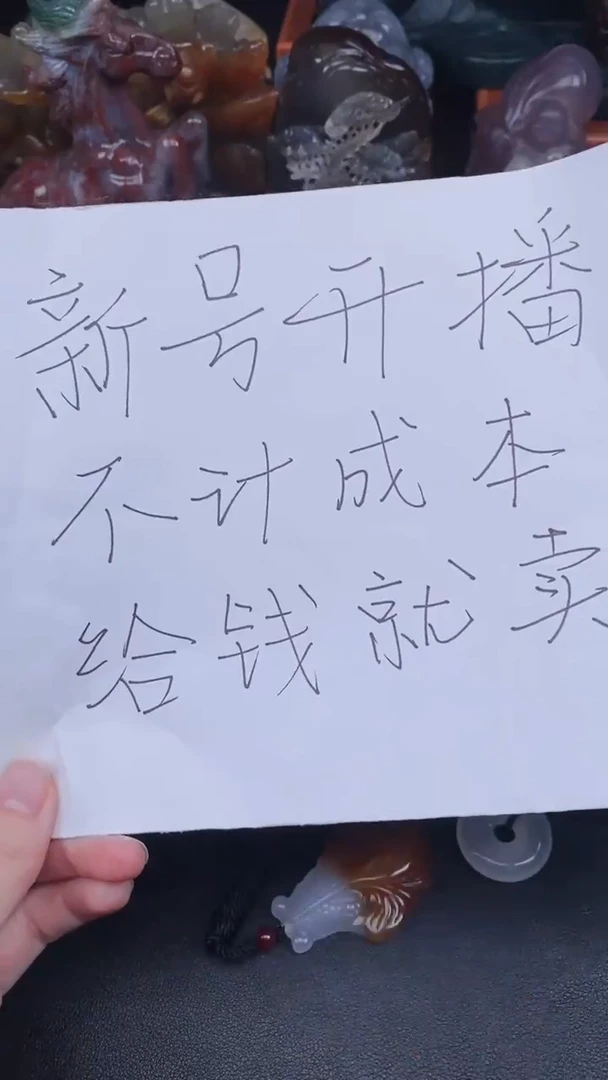 新号开播
不计成本
给钱就卖